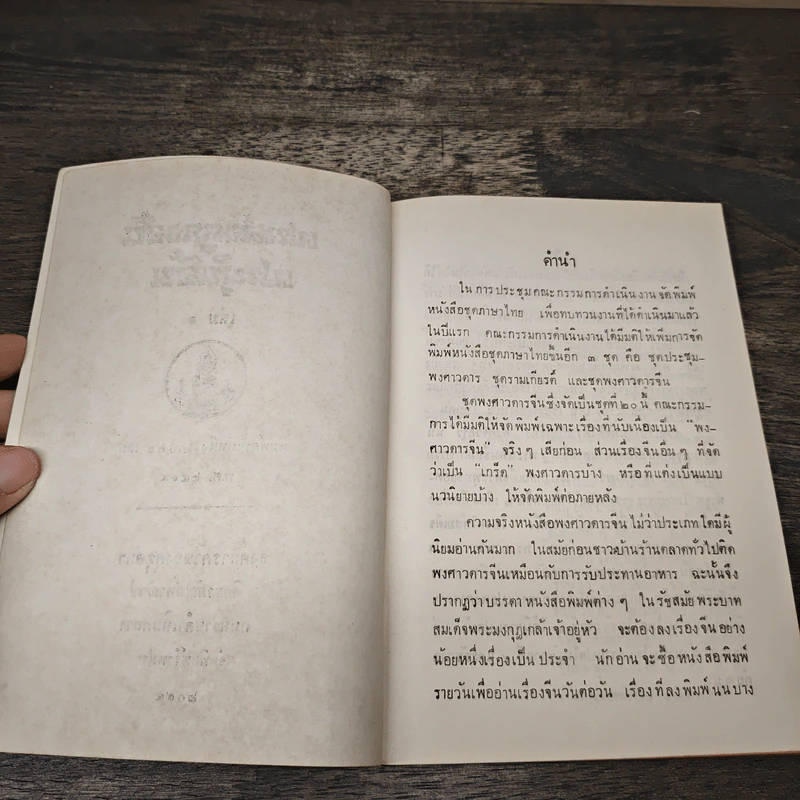 คำนำ
ในการประชุมคณะกรรมการดำเนินงานจัดพิมพ์
หนังสือชุดภาษาไทย เพื่อทบทวนงานที่ได้ดำเนินมาแล้ว
ในปีแรก คณะกรรมการดำเนินงานได้มีมติให้เพิ่มการจัด
พิมพ์หนังสือชุดภาษาไทยขึ้นอีก ๓ ชุด คือ ชุดประชุม-
พงศาวดาร ชุดรามเกียรติ์ และชุดพงศาวดารจีน
ชุดพงศาวดารจีนซึ่งจัดเป็นชุดที่ ๒๐ นี้ คณะกรรม-
การได้มีมติให้จัดพิมพ์เฉพาะเรื่องที่นับเนื่องเป็น "พง-
ศาวดารจีน" จริง ๆ เสียก่อน ส่วนเรื่องจีนอื่น ๆ ที่จัด
ว่าเป็น "เกร็ด" พงศาวดารบ้าง หรือที่แต่งเป็นแบบ
นวนิยายบ้าง ให้จัดพิมพ์ต่อภายหลัง
ความจริงหนังสือพงศาวดารจีน ไม่ว่าประเภทใดมีผู้
นิยมอ่านกันมาก ในสมัยก่อนชาวบ้านร้านตลาดทั่วไปติด
พงศาวดารจีนเหมือนกับการรับประทานอาหาร ฉะนั้นจึง
ปรากฏว่าบรรดาหนังสือพิมพ์ต่าง ๆ ในรัชสมัยพระบาท
สมเด็จพระมงกุฎเกล้าเจ้าอยู่หัว จะต้องลงเรื่องจีนอย่าง
น้อยหนึ่งเรื่องเป็นประจำ นักอ่านจะซื้อหนังสือพิมพ์
รายวันเพื่ออ่านเรื่องจีนวันต่อวัน เรื่องที่ลงพิมพ์นนบาง